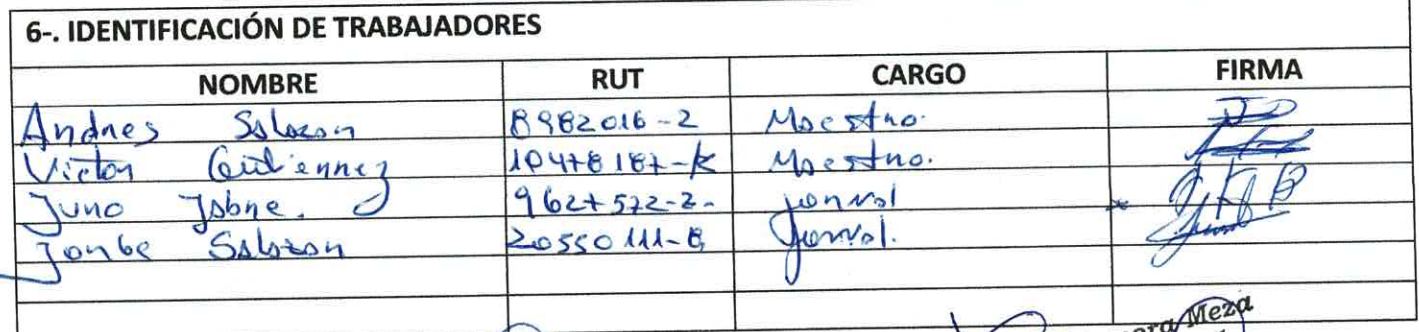 6-. IDENTIFICACIÓN DE TRABAJADORES
NOMBRE RUT CARGO FIRMA
Andres Salazar 8982016-2 Maestro.
Victor Gutierrez 10478187-K Maestro.
Juno 9627572-2- jornal
Jorge Salazar 20550111- Jornal.
Meza